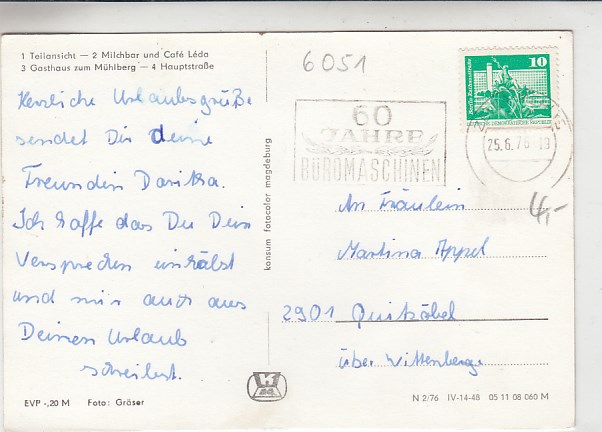 1 Teilansicht — 2 Milchbar und Café Léda
3 Gasthaus zum Mühlberg — 4 Hauptstraße
Herzliche Urlaubsgrüße
sendet Dir deine
Freundin Danka.
Ich hoffe das Du Dein
Versprechen einhälst
und mir auch aus
Deinem Urlaub
schreibst.
EVP -,20 M Foto: Gräser
konsum fotocolor magdeburg
6051
60
JAHRE
BÜROMASCHINEN
10
DEMOKRATISCHE REPUBLIK
25.6.76-19
4,-
An Fräulein
Martina Appel
2901 Quitzöbel
über Wittenberge
N 2/76 IV-14-48 05 11 08 060 M